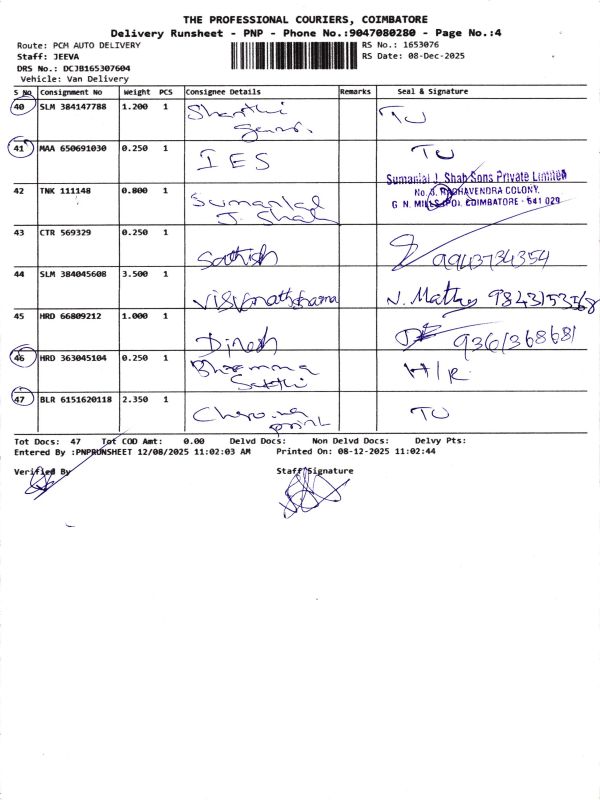 THE PROFESSIONAL COURIERS, COIMBATORE
Delivery Runsheet - PNP - Phone No.:9047080280 - Page No.:4
Route: PCM AUTO DELIVERY
RS No.: 1653076
Staff: JEEVA
RS Date: 08-Dec-2025
DRS No.: DCJB165307604
Vehicle: Van Delivery
S No Consignment No Weight PCS Consignee Details Remarks Seal & Signature
40 SLM 384147788 1.200 1 TU
41 MAA 650691030 0.250 1 IES TU
42 TNK 111148 0.800 1 Sumanlal J. Shah
Sumanlal J. Shah Sons Private Limited
No. 3, RAGHAVENDRA COLONY,
G. N. MILLS (PO), COIMBATORE - 641 029
43 CTR 569329 0.250 1 Sathish 9943734354
44 SLM 384045608 3.500 1 N.
45 HRD 66809212 1.000 1 Dinesh 9361368681
46 HRD 363045104 0.250 1 Sakthi H/R
47 BLR 6151620118 2.350 1 print TU
Tot Docs: 47 Tot COD Amt: 0.00 Delvd Docs: Non Delvd Docs: Delvy Pts:
Entered By :PNPRUNSHEET 12/08/2025 11:02:03 AM Printed On: 08-12-2025 11:02:44
Verified By
Staff Signature